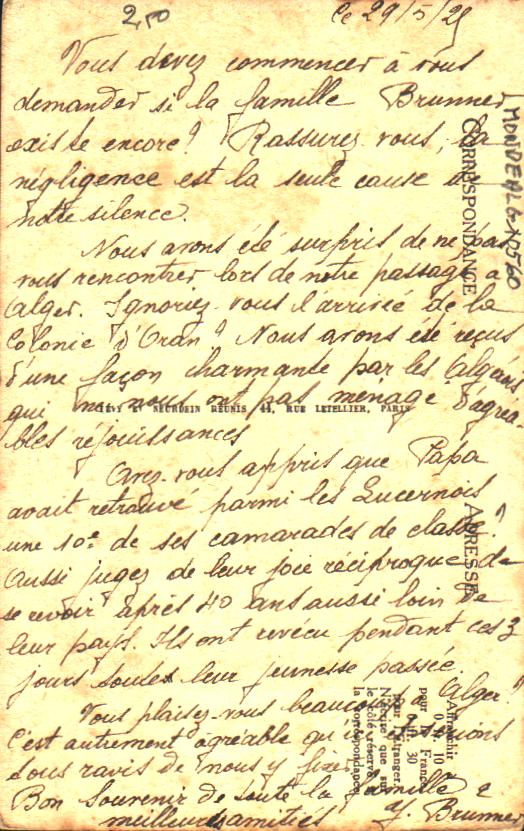 2,50
le 29/5/25
Vous devez commencer à vous
demander si la famille Brunner
existe encore? Rassurez vous, la
négligence est la seule cause de
notre silence.
Nous avons été surpris de ne pas
vous rencontrer lors de notre passage à
Alger. Ignoriez-vous l'arrivée de la
Colonie d'Oran? Nous avons été reçus
d'une façon charmante par les Algérois,
qui ne nous ont pas ménagé d'agréa-
bles réjouissances
Avez-vous appris que Papa
avait retrouvé parmi les Lucernois
une 10e de ses camarades de classe?
Aussi jugez de leur joie réciproque de
se revoir après 40 ans aussi loin de
leur pays. Ils ont revécu pendant ces 3
jours toute leur jeunesse passée.
Vous plaisez-vous beaucoup à Alger?
C'est autrement agréable qu'ici et serions
tous ravis de nous y fixer.
Bon souvenir de toute la famille &
meilleures amitiés Y. Brunner
LÉVY ET NEURDEIN RÉUNIS 44, RUE LETELLIER, PARIS
CORRESPONDANCE
ADRESSE
MONDEALGX0560
Affranchir
0 fr. 10
pour la France
0 fr. 30
pour l'étranger.
N'écrire que sur
le côté réservé à
la correspondance